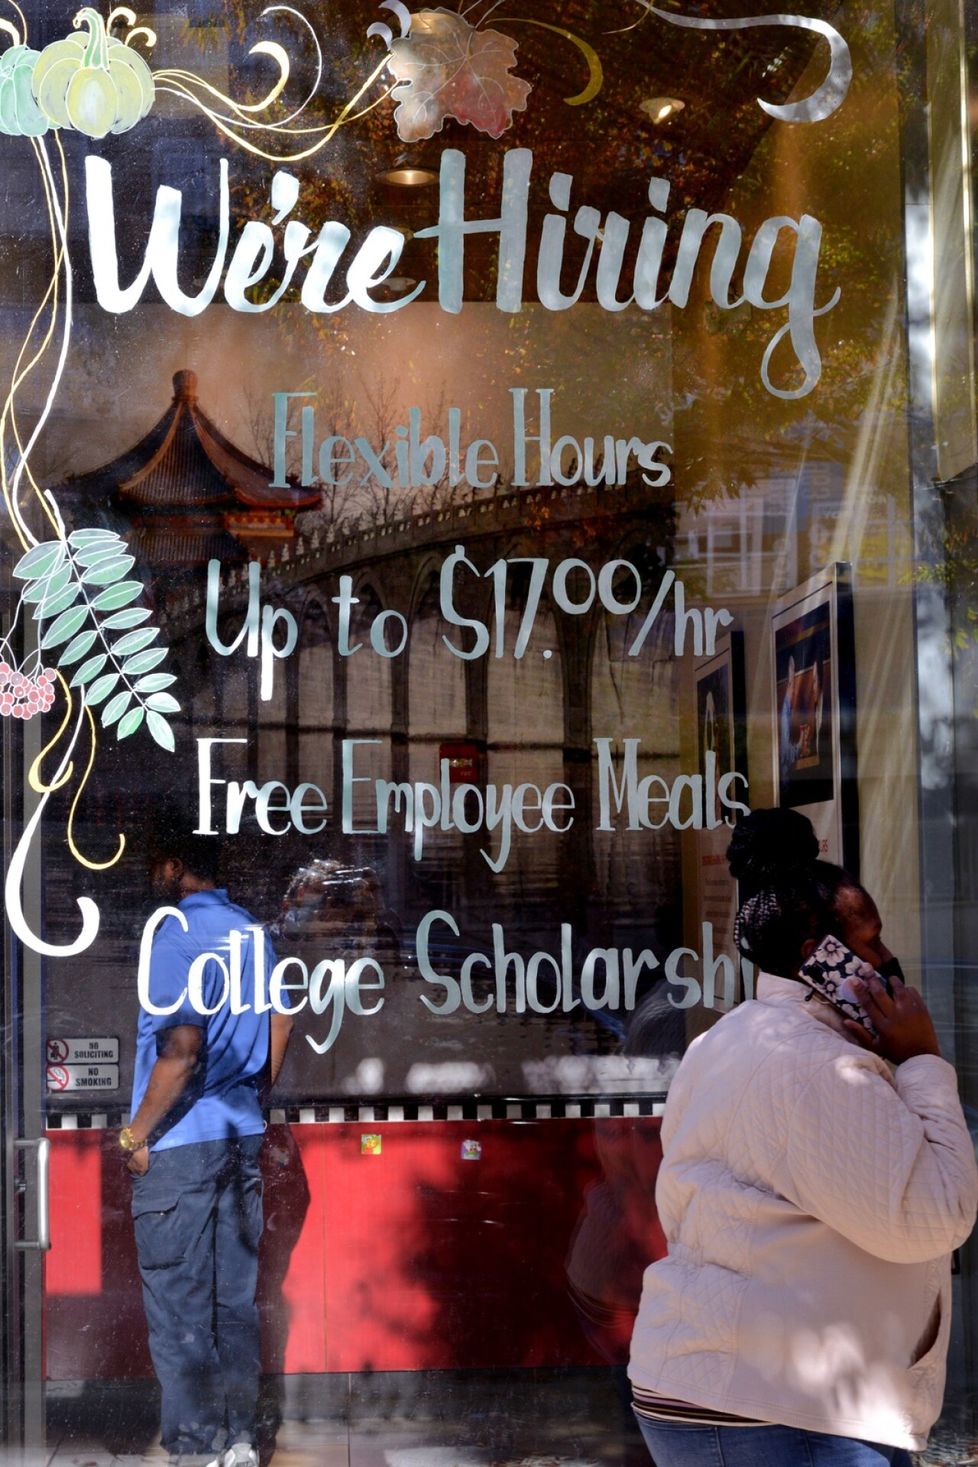 We're Hiring
Flexible Hours
Up to $17.00/hr
Free Employee Meals
College Scholarshi
NO
SOLICITING
NO
SMOKING